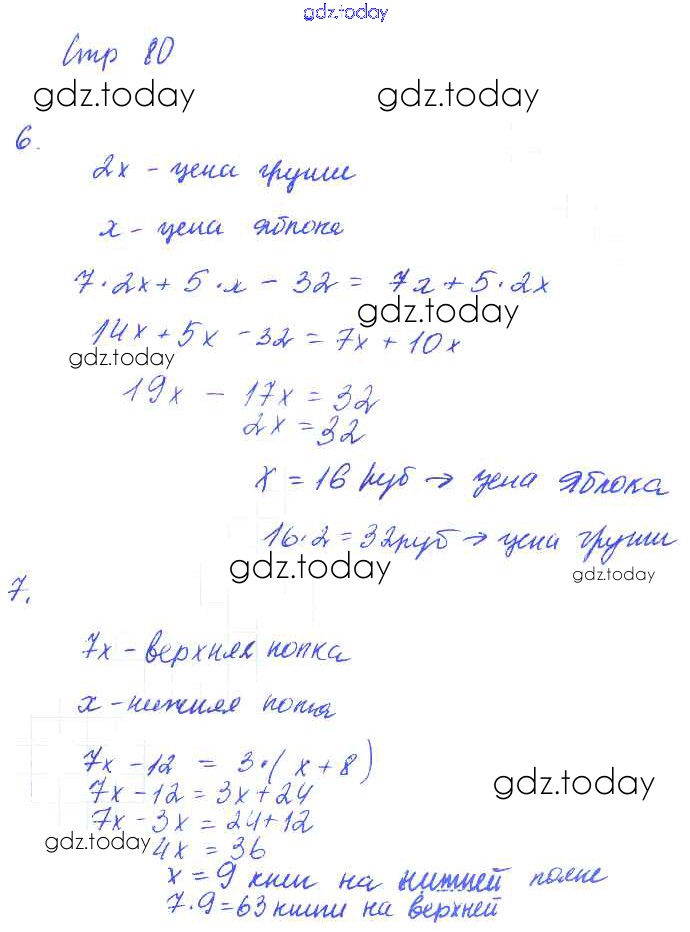 gdz.today
Стр 80
gdz.today gdz.today
6.
2x - цена груши
x - цена яблока
7·2x + 5·x - 32 = 7x + 5·2x
gdz.today
14x + 5x - 32 = 7x + 10x
gdz.today
19x - 17x = 32
2x = 32
x = 16 руб → цена яблока
16·2 = 32 руб → цена груши
gdz.today gdz.today
7.
7x - верхняя полка
x - нижняя полка
7x - 12 = 3·(x + 8)
gdz.today
7x - 12 = 3x + 24
7x - 3x = 24 + 12
gdz.today
4x = 36
x = 9 книг на нижней полке
7·9 = 63 книги на верхней